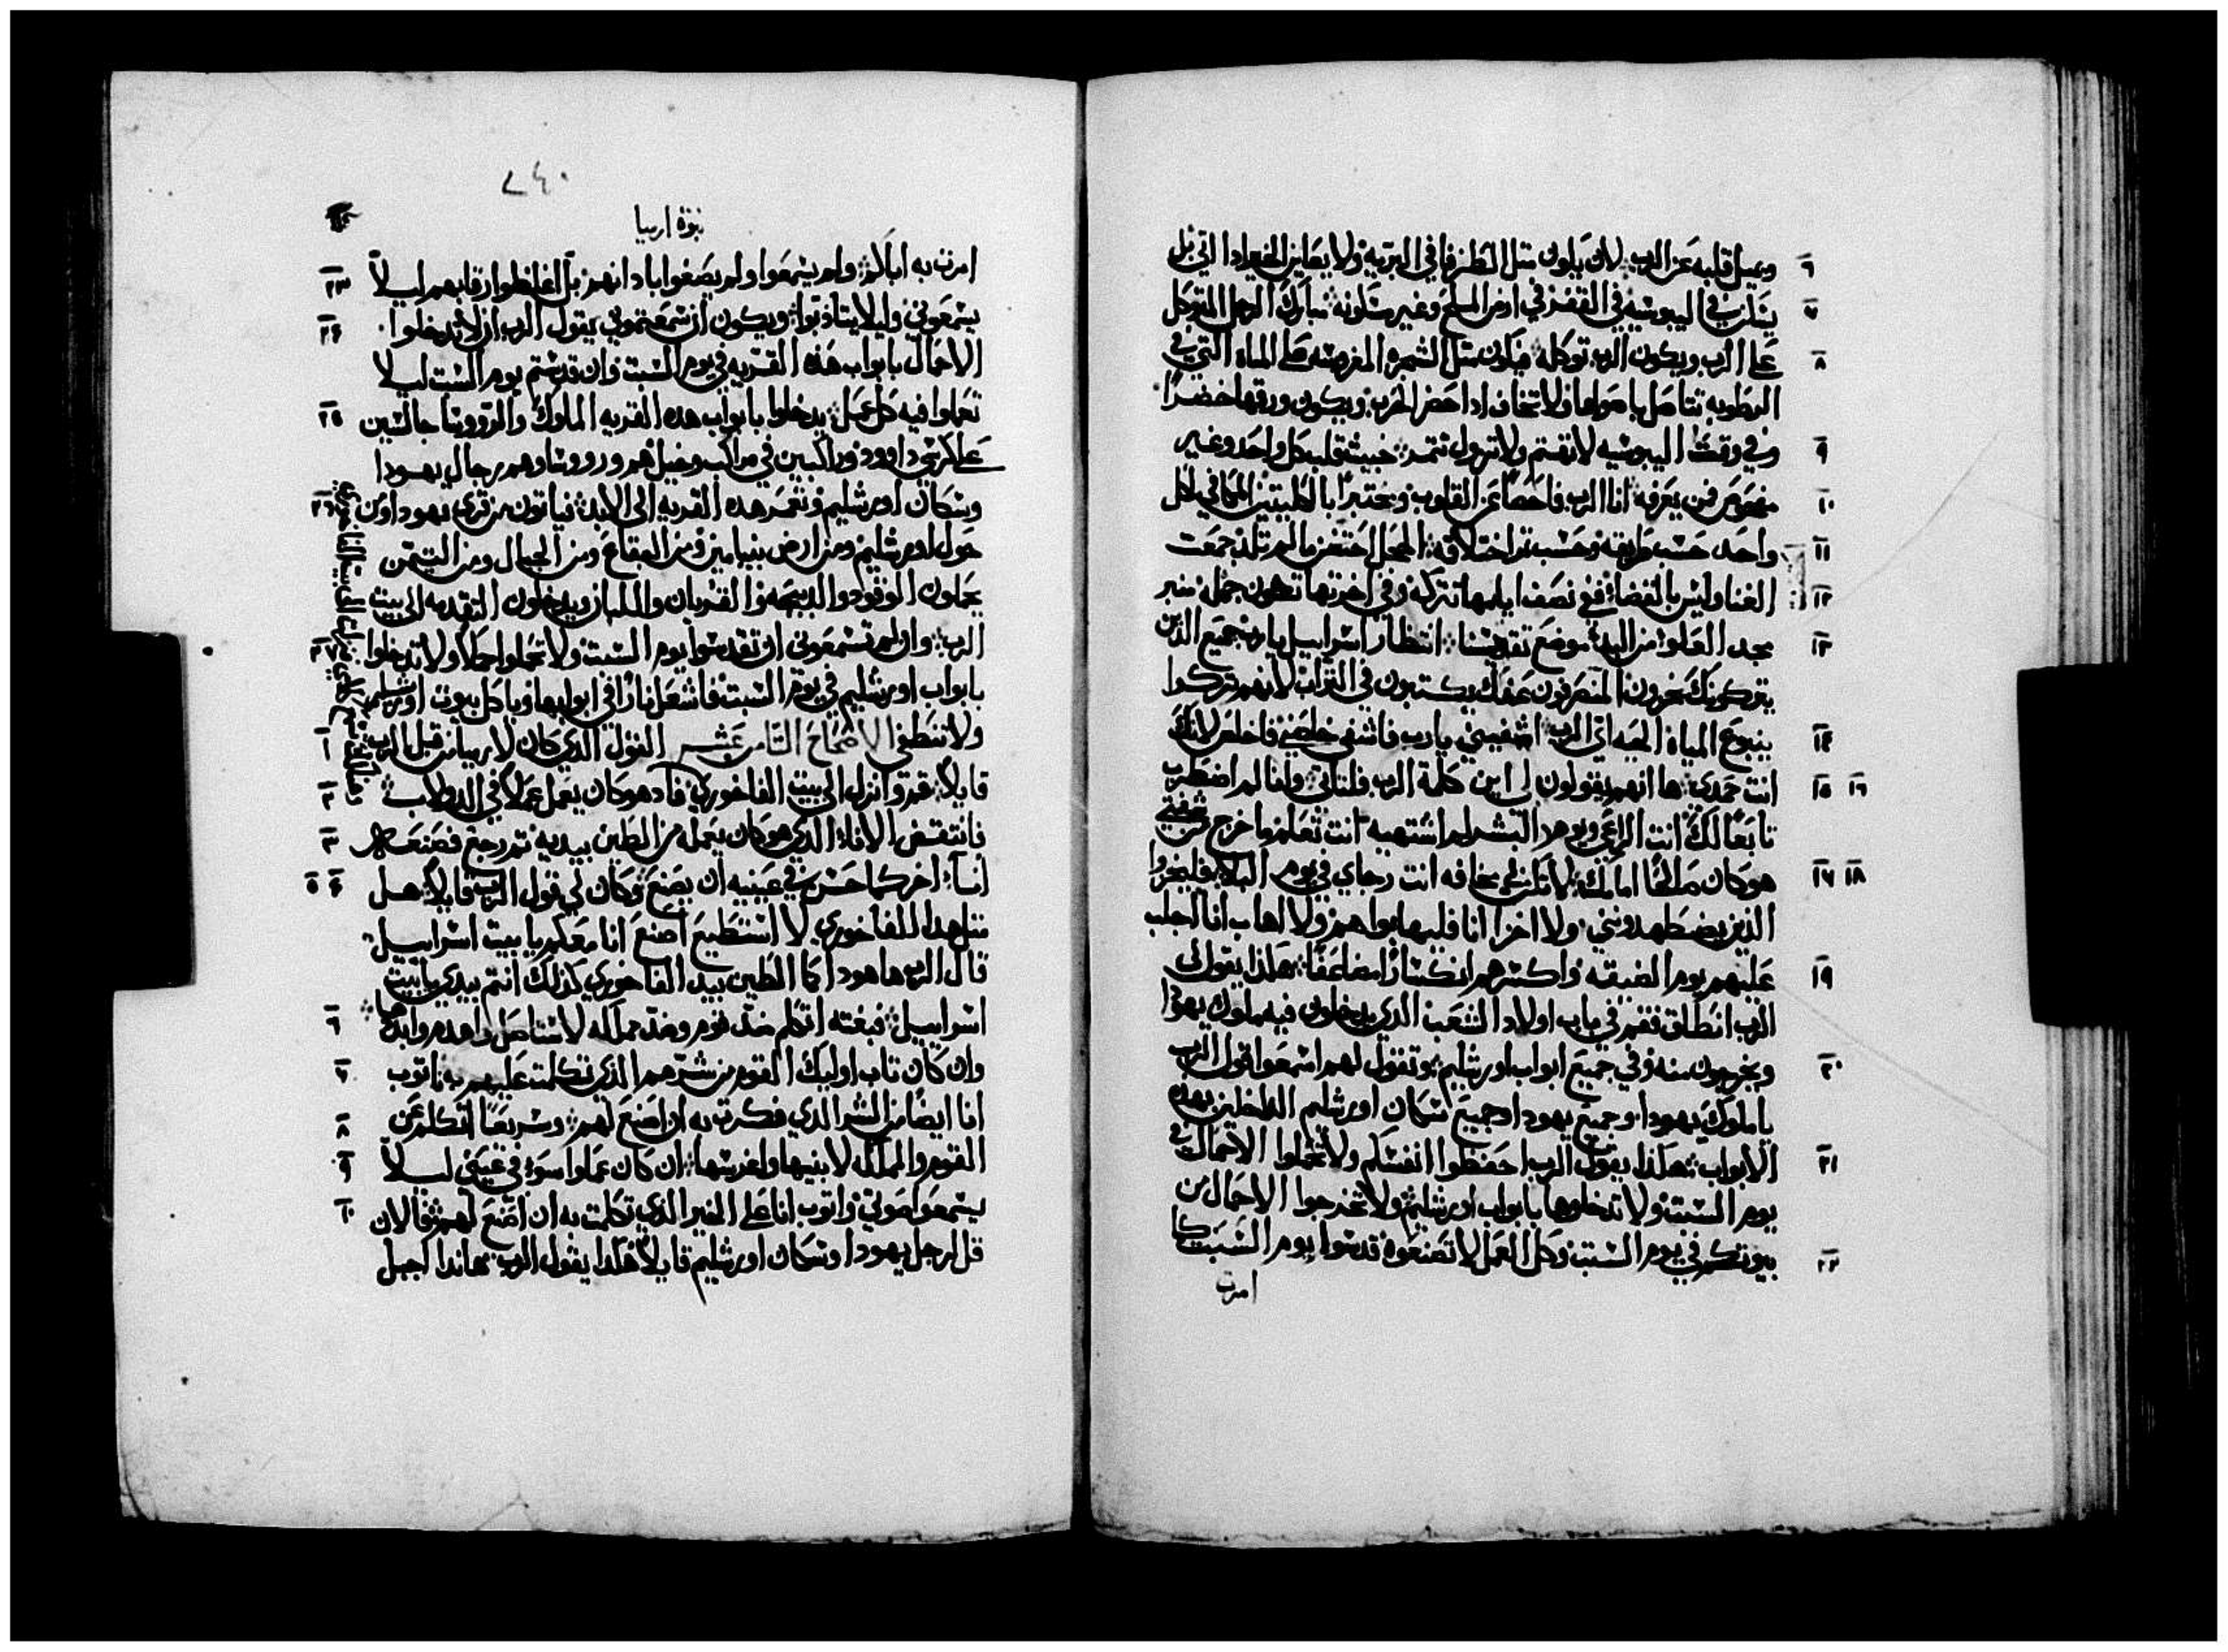 ٦ ويميل قلبه عن الرب لان يكون مثل الطرفا في البريه ولا يعاين الخير اذا اتي بل
٧ يسكن في اليبوسيه في القفر في ارض الملح وغير مسكونه تبارك الرجل المتوكل
٨ علي الرب ويكون الرب توكله فيكون مثل الشجره المغروسه علي المياه التي في
الرطوبه تتاصل باصولها ولا تخاف اذا حضر الحر ويكون ورقها خضرًا
٩ وفي وقت اليبوسيه لا تهتم ولا تزول تثمر خبيث قلب كل واحد وغير
١٠ مفحوص فمن يعرفه انا الرب فاحصًا عن القلوب ومختبرًا بالكليتين المكافي لكل
١١ واحد حسب طريقه وحسب ثمر اختلاقه الحجل احتضن ما لم تلد جمعت
١٢ الغنا وليس بالقضا ففي نصف ايامها تتركه وفي اخرتها تكون جهله منبر
١٣ مجد العلو من البدء موضع تقديسنا انتظار اسراييل يا رب جميع الذين
يتركونك يخزون المنصرفون عنك يكتبون في التراب لانهم تركوا
١٤ ينبوع المياه الحيه اي الرب اشفيني يا رب فاشفي خلصني فاخلص لانك
١٥ ١٦ انت حمدي ها انهم يقولون لي اين كلمة الرب فلتاتي وانا لم اضطرب
تابعًا لك انت الراعي ويوم البشر لم اشتهيه انت تعلم ما خرج من شفتي
١٧ ١٨ هو كان صالحًا امامك لا تكن لي مخافه انت رجاي في يوم البلا فليخزوا
الذين يضطهدونني ولا اخزا انا فليهابوا هم ولا اهاب انا اجلب
١٩ عليهم يوم الضيقه واكسرهم انكسارًا مضاعفًا هكذا يقول لي
الرب انطلق فقم في باب اولاد الشعب الذي يدخلون فيه ملوك يهودا
٢٠ ويخرجون منه وفي جميع ابواب اورشليم وتقول لهم اسمعوا قول الرب
يا ملوك يهودا وجميع يهودا وجميع سكان اورشليم الداخلين بهذه
٢١ الابواب هكذا يقول الرب احفظوا انفسكم ولا تحملوا الاحمال في
يوم السبت ولا تدخلوها بابواب اورشليم ولا تخرجوا الاحمال من
٢٢ بيوتكم في يوم السبت وكل العمل لا تصنعوه قدسوا يوم السبت كما
امرت
٢٤٠
نبوة ارميا
امرت به اباكم ولم يسمعوا ولم يصغوا باذانهم بل اغلظوا رقابهم ليلاً ٢٣
يسمعوني وليلا يتاذبوا ويكون ان سمعتموني يقول الرب ان لا تدخلوا ٢٤
الاحمال بابواب هذه القريه في يوم السبت وان قدستم يوم السبت ليلا
تعملوا فيه كل عمل يدخلوا بابواب هذه القريه الملوك والروسا جالسين ٢٥
علي كرسي داوود وراكبين في مراكب وخيل هم وروساوهم رجال يهودا
وسكان اورشليم وتعمر هذه القريه الي الابد فياتون من قري يهودا ومن ٢٦
حول اورشليم ومن ارض بنيامين ومن البقاع ومن الجبال ومن التيمن
يحملون الوقود والذبيحه والقربان واللبان ويدخلون التقدمه الي بيت
الرب وان لم تسمعوني ان تقدسوا يوم السبت ولا تحملوا حملاً ولا تدخلوا ٢٧
بابواب اورشليم في يوم السبت فاشعل نارًا في ابوابها وتاكل بيوت اورشليم
ولا تنطفي الاصحاح الثامن عشر القول الذي كان لارميا من قبل الرب ١
قايلاً قم وانزل الي بيت الفاخوري فاذ هو كان يعمل عملاً في الدولاب ٢
فانتقض الاناء الذي هو كان يعمله من الطين بيديه ثم رجع فصنعه ٣
اناء اخر كما حسن في عينيه ان يصنع وكان لي قول الرب قايلاً هل ٤ ٥
مثل هذا الفاخوري لا استطيع اصنع انا معكم يا بيت اسراييل
قال الرب ها هوذا كما الطين بيد الفاخوري كذلك انتم بيدي يا بيت
اسراييل فبغته اتكلم ضد قوم وضد مملكه لاستاصل واهدم وابدها ٦
وان كان تاب اوليك القوم من شرهم الذي تكلمت عليهم به فاتوب ٧
انا ايضًا من الشر الذي فكرت به ان اصنع لهم وسريعًا اتكلم عن ٨
القوم والمملكه لابنيها واغرسها ان كان عملوا سوء في عيني ليلاً ٩
يسمعوا صوتي واتوب انا علي الخير الذي تكلمت به ان اصنع لهم فالان ١٠
قل لرجل يهودا وسكان اورشليم قايلاً هكذا يقول الرب هانذا اجبل